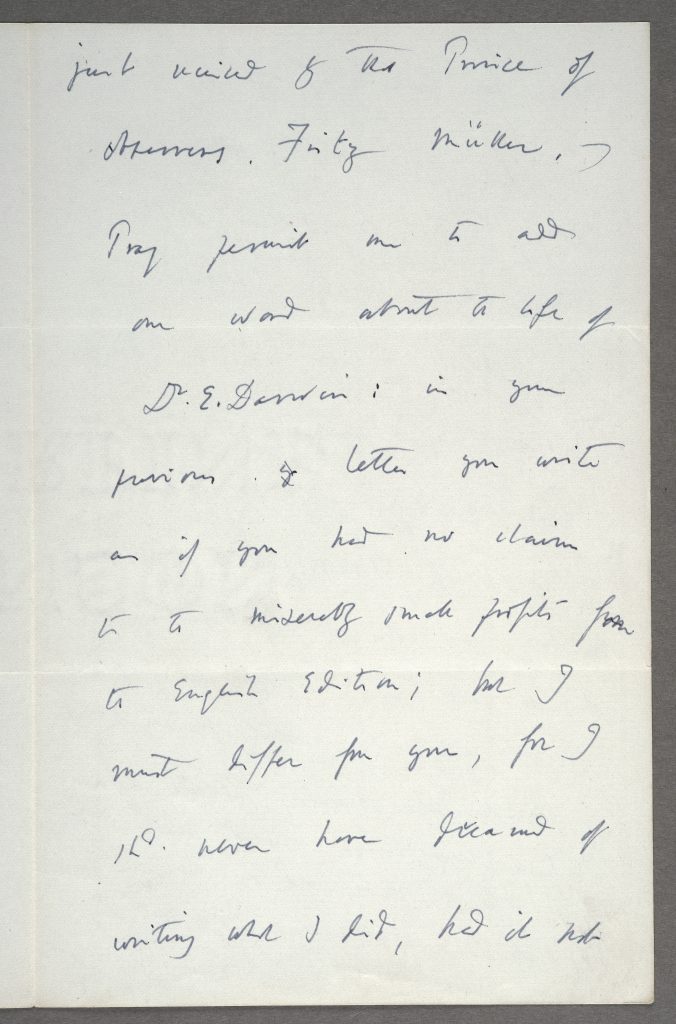 just received by the Prince of
observers. Fritz Müller. —
Pray permit me to add
one word about the life of
Dr. E. Darwin: in your
previous letter you write
as if you had no claim
to the miserably small profits from
the English Edition; but I
must differ from you, for I
shd. never have dreamed of
writing what I did, had it not